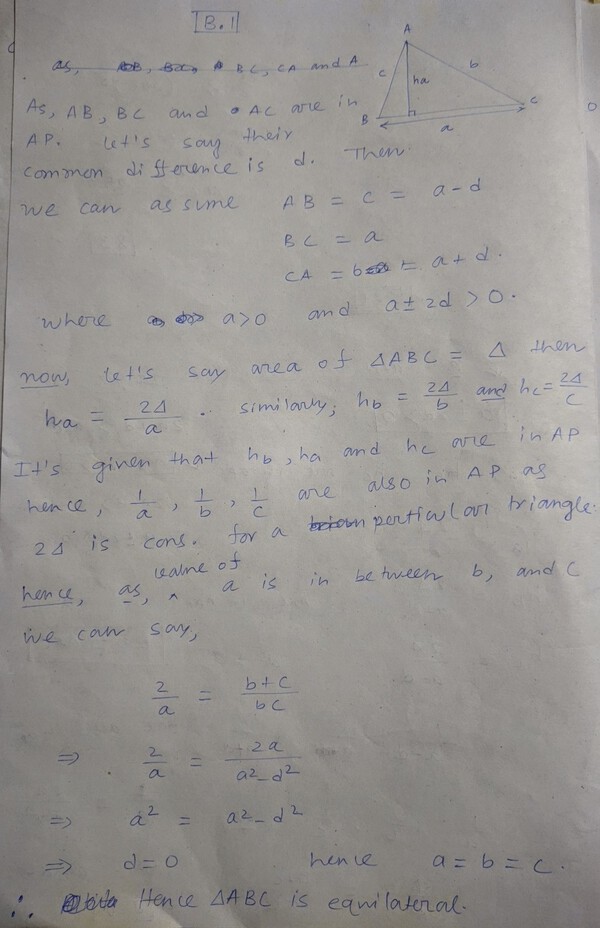 B.1
BC, CA and A
A
c
b
ha
B
C
a
As, AB, BC and AC are in
AP. Let's say their
common difference is d. Then
we can assime AB = c = a-d
BC = a
CA = b = a+d.
where a>0 and a±2d >0.
now, let's say area of ΔABC = Δ then
ha = 2Δ/a . similarly; hb = 2Δ/b and hc = 2Δ/c
It's given that hb, ha and hc are in AP
hence, 1/a, 1/b, 1/c are also in AP as
2Δ is cons. for a perticular triangle.
hence, as, value of a is in between b, and c
we can say,
2/a = b+c/bc
⇒ 2/a = 2a/a²-d²
⇒ a² = a²-d²
⇒ d=0 hence a=b=c.
∴ Hence ΔABC is equilateral.